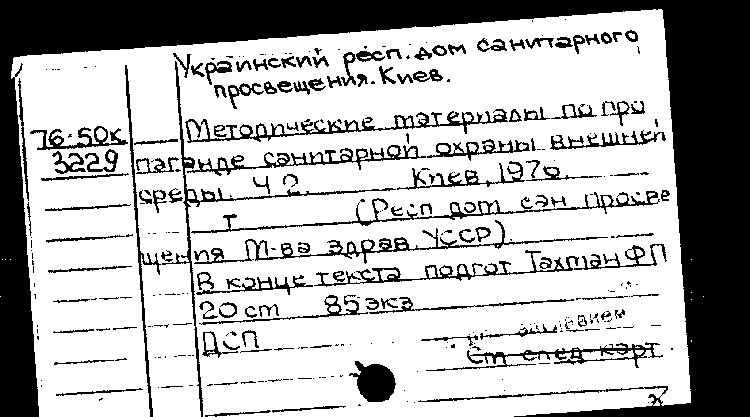 Украинский респ. дом санитарного
просвещения. Киев.
76-50к
3229
Методические материалы по про
паганде санитарной охраны внешней
среды. Ч 2. Киев, 1970.
т (Респ дом сан просве
щения М-ва здрав. УССР).
В конце текста подгот Тахтман ФП
20 ст 85 экз
ДСП
См след карт